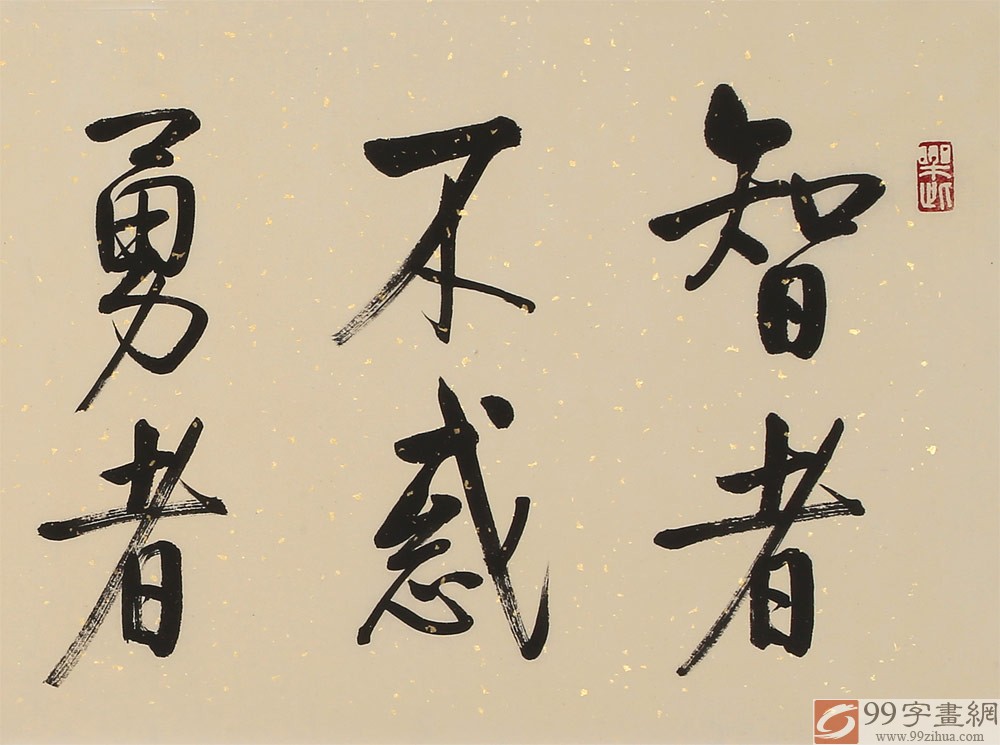 智者
不惑
勇者
99字畫網
www.99zihua.com